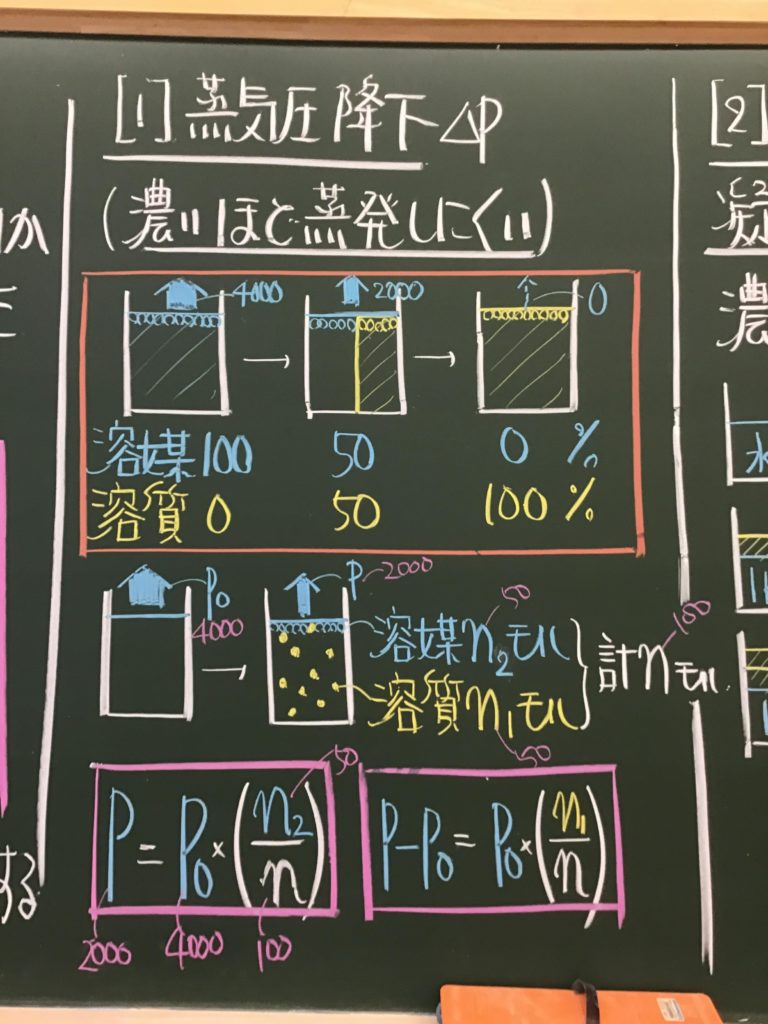 [1]蒸気圧降下ΔP
(濃いほど蒸発しにくい)
4000 2000 0
溶媒 100 50 0 %
溶質 0 50 100 %
P₀ 4000
P 2000
溶媒n₂モル 50
溶質n₁モル 50
計nモル 100
P = P₀ × (n₂/n) 50
2000 4000 100
P-P₀ = P₀ × (n₁/n)
[2]
濃
水
か
する